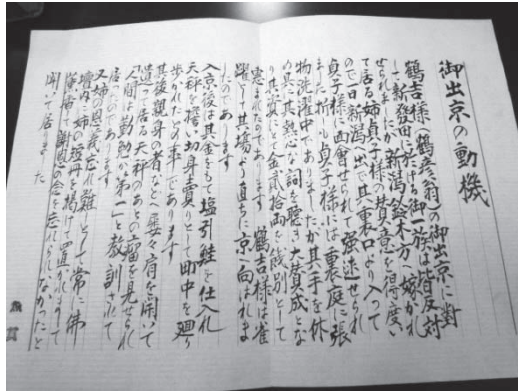 御出京の動機
鶴吉様(鶴彦翁)の御出京に對
して新發田に於ける御一族は皆反対
せられましたが新潟鈴木方へ嫁がれ
て居る姉貞子様の賛意を得度い
ので日新潟へ出で其裏口より入つて
貞子様に面會せられて強迫せられ
ました折しも貞子様には裏庭に張
物洗濯中でありましたが其手を休
め具に其熱心な詞を聽き大賛成とな
り其
して金貳拾両を餞別として
恵まれたのであります 鶴吉様は雀
躍して其場より直ちに京へ向はれま
したのであります
入京後は其金をもて塩引鮭を仕入れ
天秤を擔い切身賣りとして町中を廻り
歩かれたとの事であります
其後親身の者などへ屡々肩を開いて
遺つて居る天秤のあとの瘤を見せられ
「人間は勤勉が第一」と教訓されて
居つたのであります
又姉の恩義忘れ難しとして常に佛
壇内に姉の短冊を掲げて置かれまして
謝恩の念を忘れられなかつたと
聞いて居ました